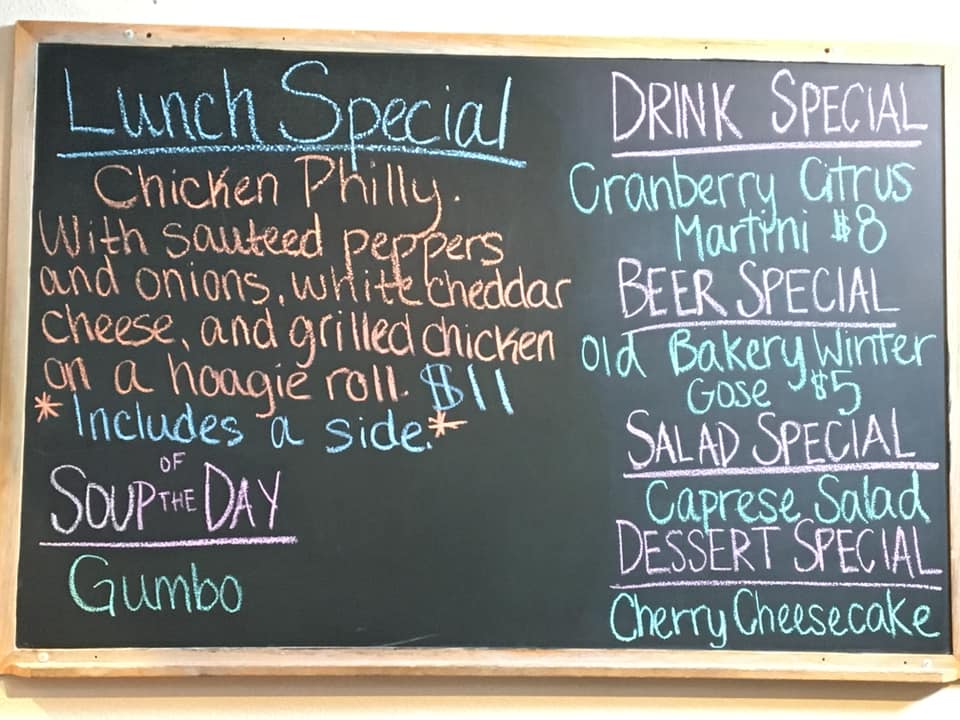 Lunch Special
Chicken Philly.
With sauteed peppers
and onions, white cheddar
cheese, and grilled chicken
on a hoagie roll. $11
*Includes a side.*
SOUP OF THE DAY
Gumbo
DRINK SPECIAL
Cranberry Citrus
Martini $8
BEER SPECIAL
Old Bakery Winter
Gose $5
SALAD SPECIAL
Caprese Salad
DESSERT SPECIAL
Cherry Cheesecake